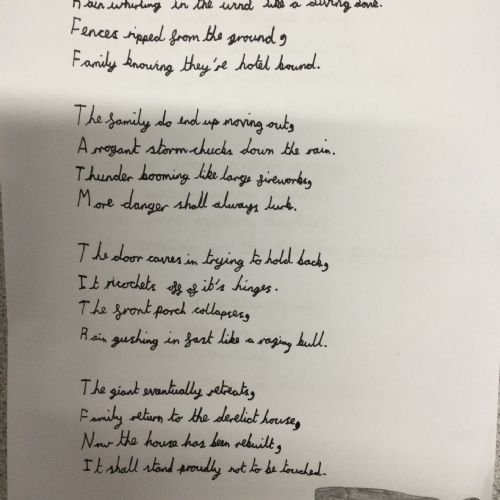 Rain whirling in the wind like a diving dove.
Fences ripped from the ground,
Family knowing they're hotel bound.
The family do end up moving out,
Arrogant storm chucks down the rain.
Thunder booming like large fireworks,
More danger shall always lurk.
The door caves in trying to hold back,
It ricochets off of it's hinges.
The front porch collapses,
Rain gushing in fast like a raging bull.
The giant eventually retreats,
Family return to the derelict house,
Now the house has been rebuilt,
It shall stand proudly not to be touched.